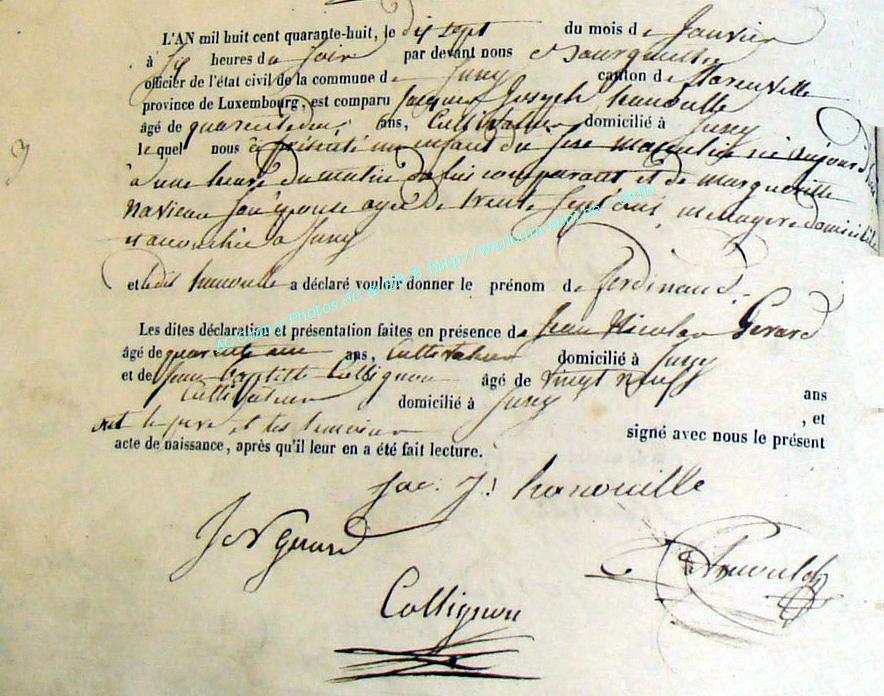 L'AN mil huit cent quarante-huit, le dix sept du mois de Janvier
à six heures du Soir par devant nous
officier de l'état civil de la commune de Suxy canton de florenville
province de Luxembourg, est comparu Jacques Joseph hanouille
âgé de quarente deux ans, Cultivateur domicilié à Suxy
lequel nous à présenté un enfant du sexe masculin né aujourd'hui
à une heure du matin de lui comparant et de Margueritte
navieau son épouse agée de trente sept ans, menagere domiciliée
et accouchée à Suxy
et ledit hanouille a déclaré vouloir donner le prénom de ferdinand.
Les dites déclaration et présentation faites en présence de Jean Nicolas Gerard
âgé de quarente ans, Cultivateur domicilié à Suxy
et de Jean Baptiste Collignon âgé de vingt neuf ans
Cultivateur domicilié à Suxy , et
ont le pere et les temoins signé avec nous le présent
acte de naissance, après qu'il leur en a été fait lecture.
Jac. J. hanouille
J N Gerard
Collignon